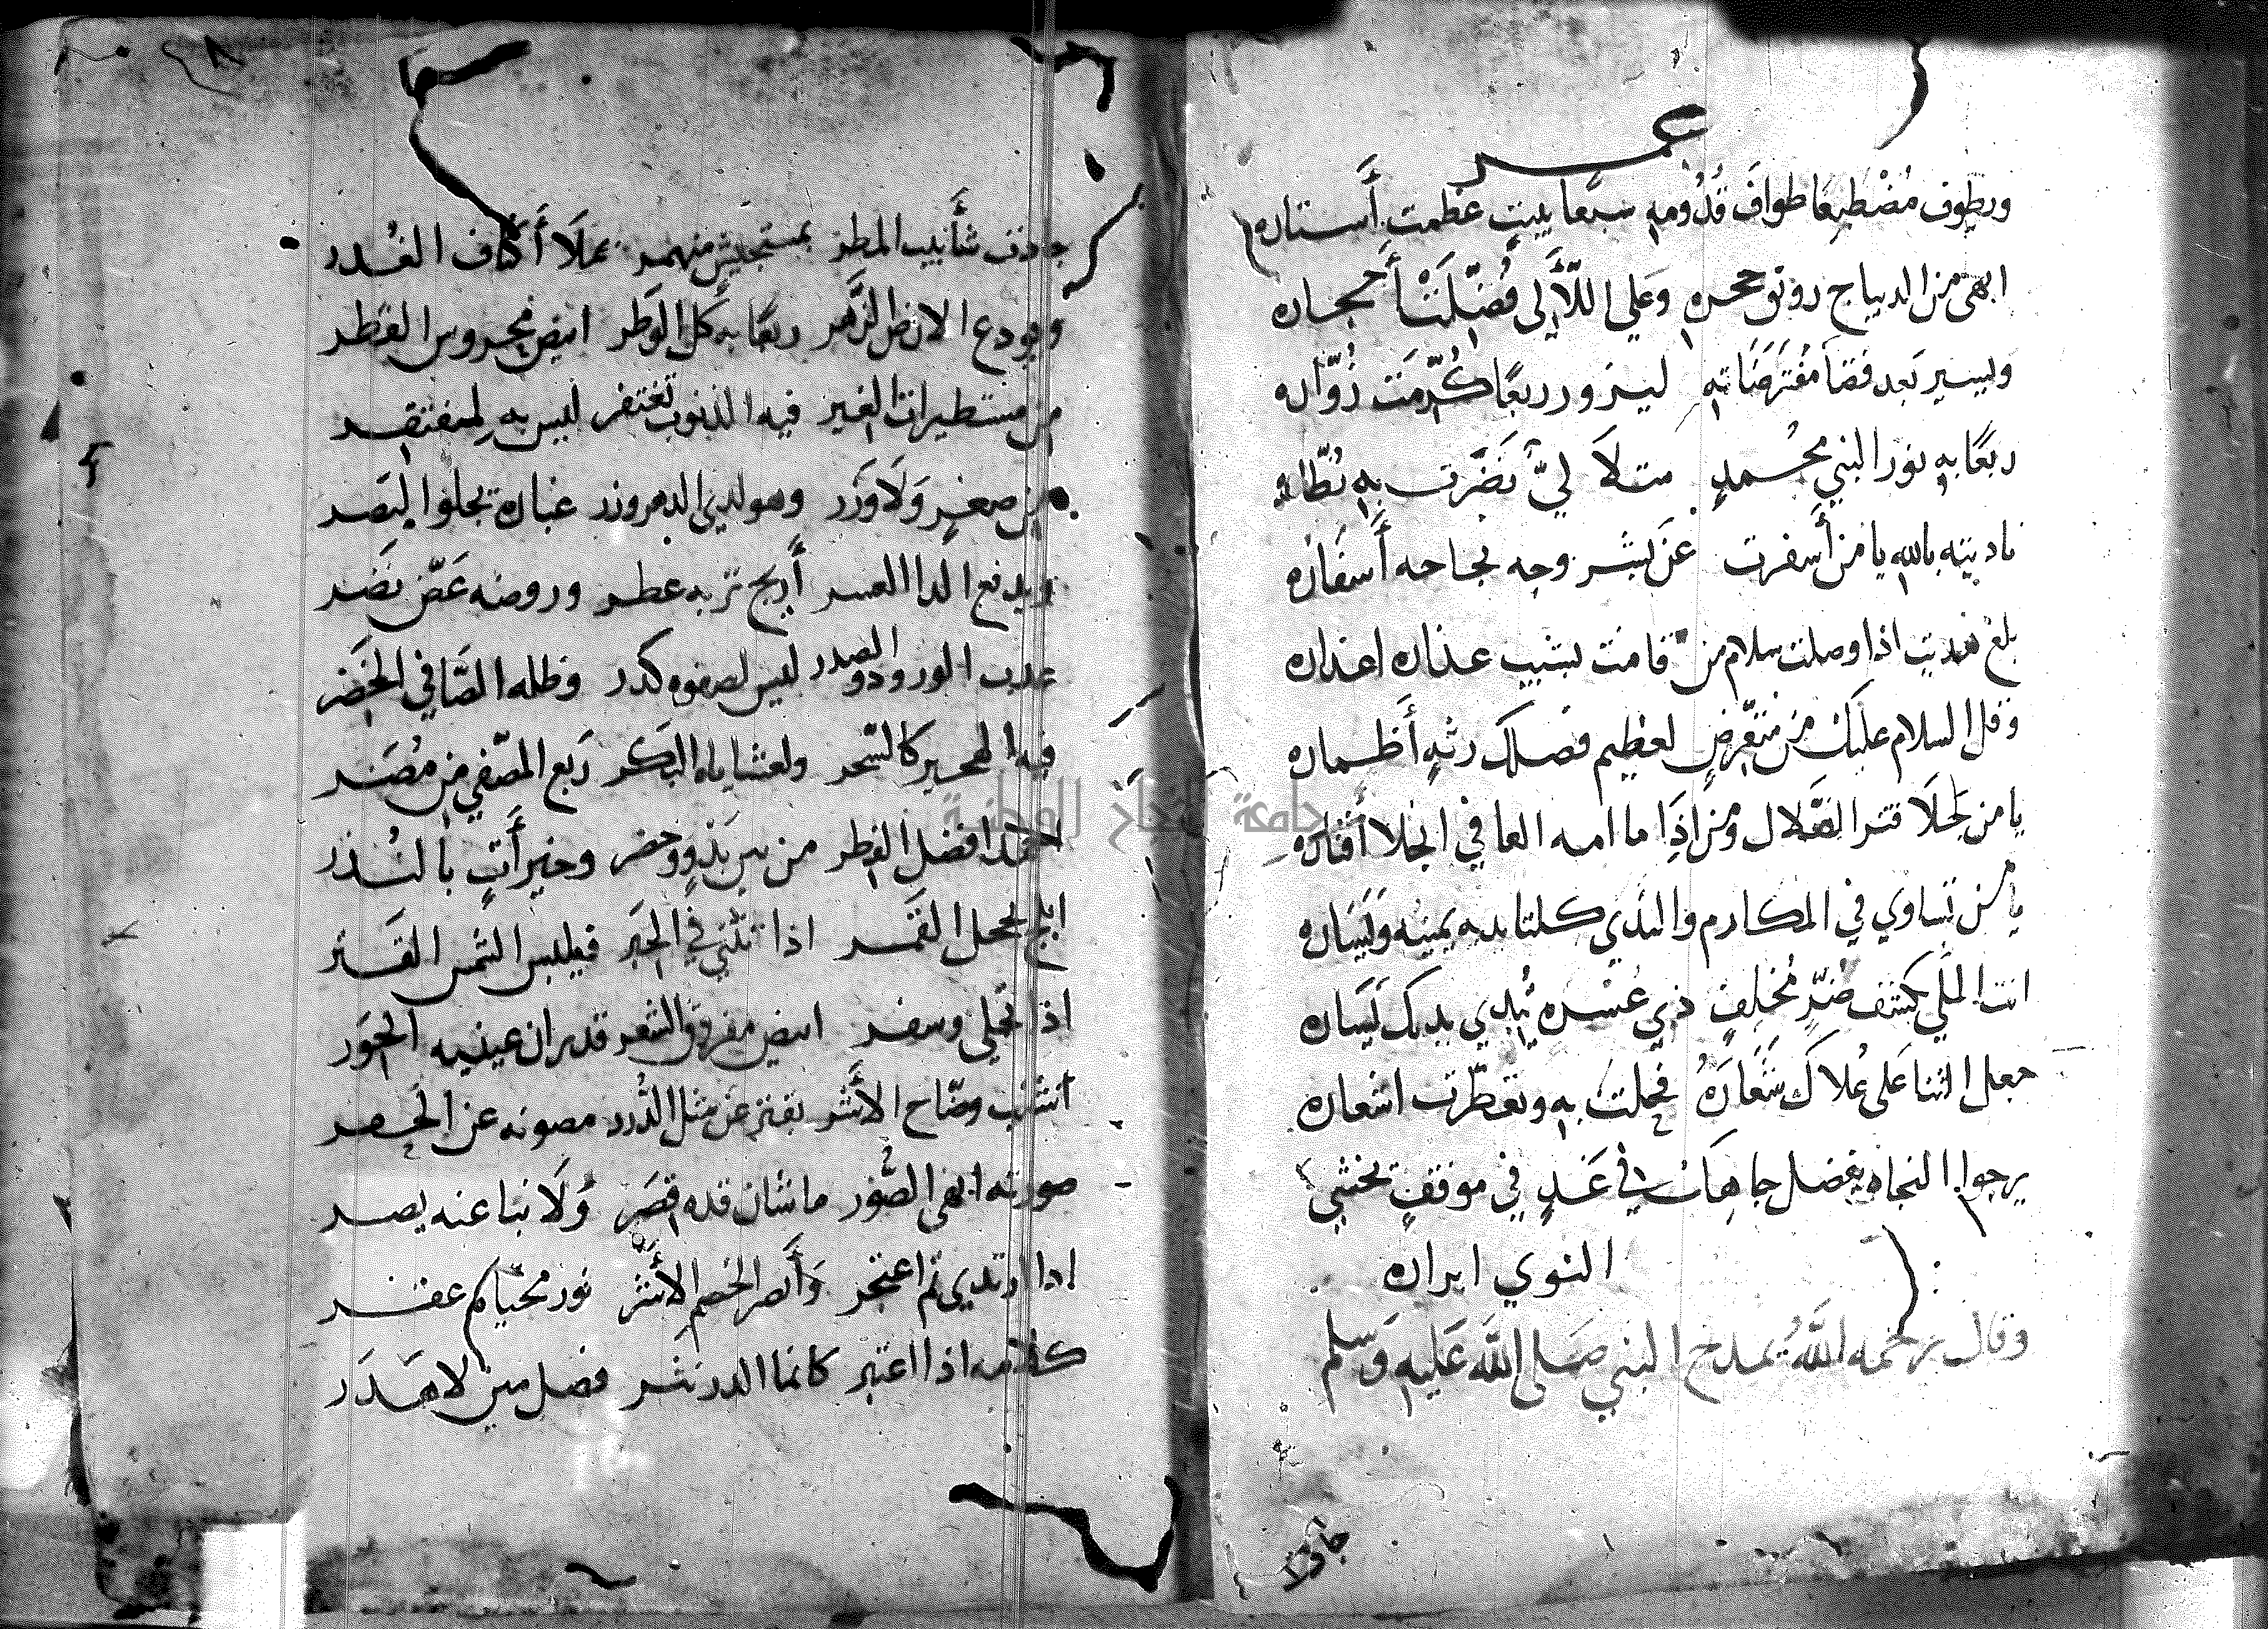 ويطوف مُضْطبعًا طوافَ قُدُومهِ سبعًا ببيتٍ عظمت أَستاره
ابهى من الديباج رونق وعلى اللّآلي فُضِّلَتْ أَحجاره
ويسير بَعد قضا مُفْتَرَضَاتهِ ليزور ربعًا كُرِّمَت زُوّاره
ربعًا بهِ نور النبي محمدٍ متلألئ نَضَرت بهِ نُظّاره
ناديته بالله يا من أَسفرت عن بشر وجه نجاحه أَسفَاره
بلغ هُديت اذا وصلت سلام من قامت بشيب عذاره اعذاره
وقل السلام عليك من متعرّضٍ لعظيم فضلك رثةٍ أَطماره
يا من جلا قتر الضَّلال ومن اذَا ما امه العافي انجلا أَقتاره
يا من تساوي في المكارم والندي كلتا يديه يمينه ويَسَاره
انت الملي كشف ضُرِّ مُخلِفٍ ذي عُسْره بندي يديك يَسَاره
جعل الثنا عَلى عُلاك شعَارَهُ فحلت بهِ وتعطّرت اشعاره
يرجوا النجاه بفضل جاهك في غدٍ في موقفٍ تخشى
النوي ابراره
وقال يرحمه الله يمدح النبي صَلى الله عَليهِ وَسلم
جادت شأبيب المطر بمستجيش منهمر يملَا أَكناف الغُدر
ويودع الارض الزَّهر ربعًا به كل الوَطر ابيض محروس القطر
من مستطيرات الغير فيه الذنوب تغتفر ليس بهِ لمفتقد
من صغرٍ وَلَا وَزَر وهو لدي الدهر وزر غباره يجلوا البصر
ويدفع الدا العسر أَريج تربه عطر وروضه غَضّ نَضر
عذب الورود والصدر ليس لصفوه كدر وظله الضَافي الخَضر
فيه الهجير كالسّحر ولعشاياه البكر رَبع المصّفي من مُضَر
احمد افضل الفطر من بين بَدْوٍ وحضر وخير أَتٍ بالنُذر
ابلج يخجل القَمَر اذا تثنى في الحِبَر فيلبس الشمس القَتر
اذا تجلي وسفر ابيض مفروق الشعر قد زان عينيه الحَوَر
اشنب وضّاح الأَشر يفتر عن مثل الدُرر مصونه عن الحصر
صورته ابهى الصُّوَر ما شان قده قِصَر وَلَا نبا عنه بصر
اذا ارتدي ثم اعتجر وَأَبصر الخصم الأَشر نور محيّاه عفر
كلامه اذا اعتبر كانما الدر نثر فصل مبين لا هَدَر